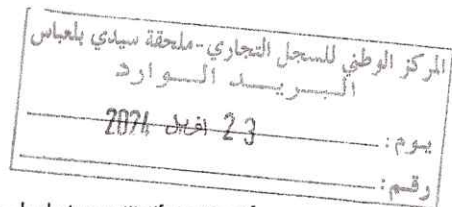 المركز الوطني للسجل التجاري - ملحقة سيدي بلعباس
البريد الوارد
يوم: 23 افريل 2024
رقم: